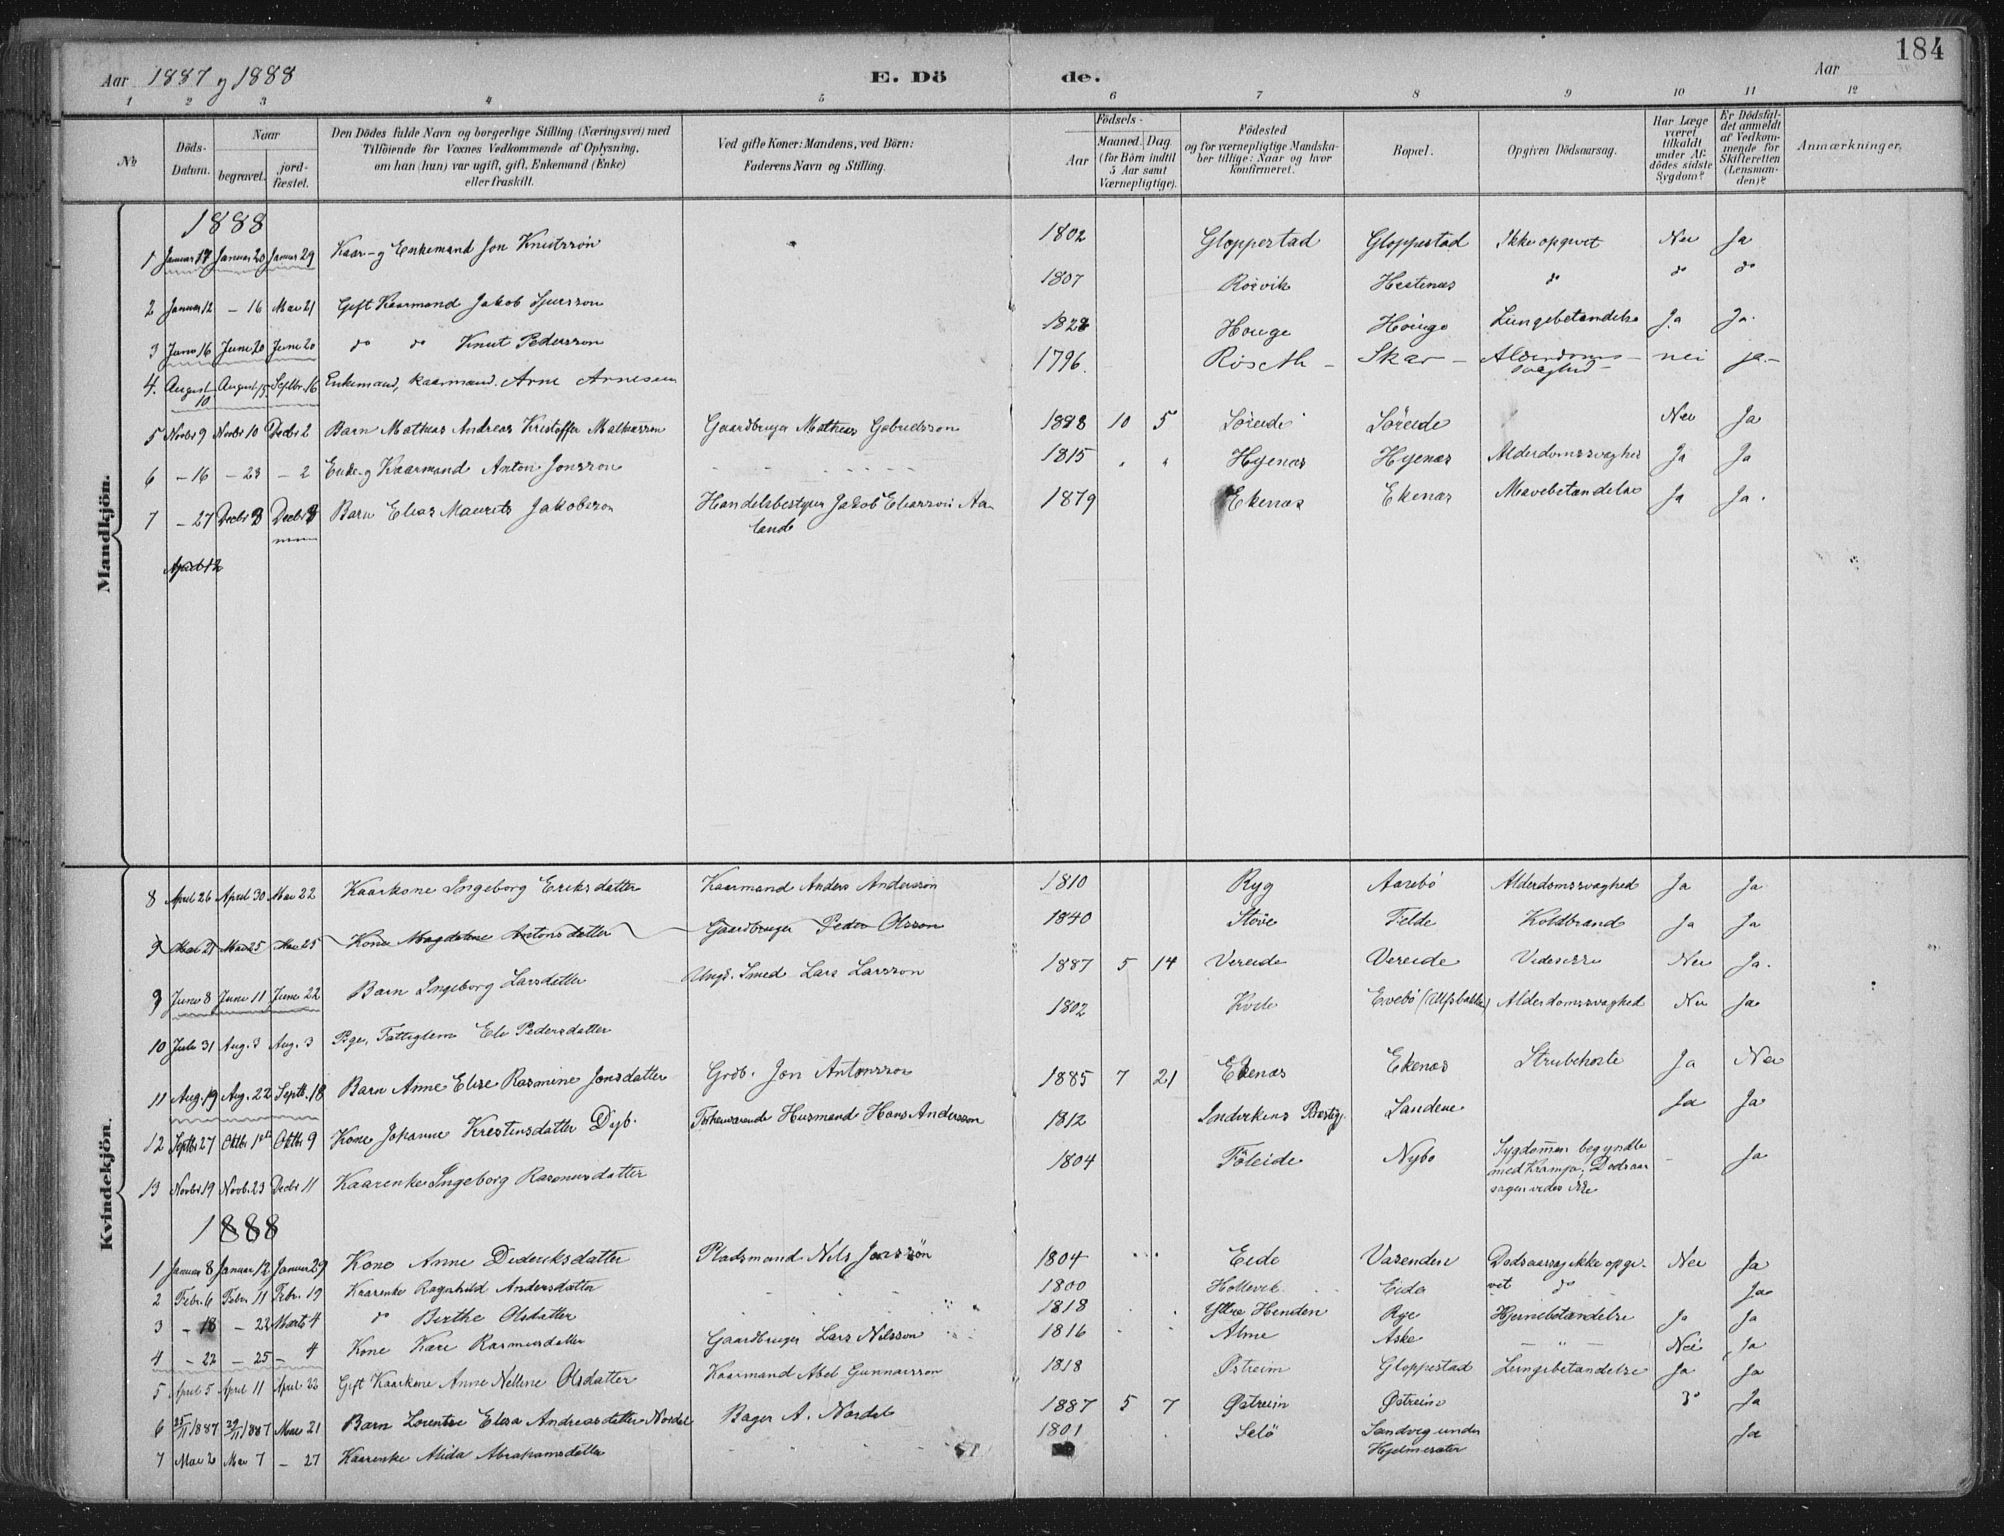 184
Aar 1887 og 1888 E. Dö de. Aar
1 2 3 4 5 6 7 8 9 10 11 12
No
Döds-Datum.
Naar
begravet.
jord-fæstet.
Den Dödes fulde Navn og borgerlige Stilling (Næringsvei) med
Tilföiende for Voxnes Vedkommende af Oplysning,
om han (hun) var ugift, gift, Enkemand (Enke)
eller fraskilt.
Ved gifte Koner: Mandens, ved Börn:
Faderens Navn og Stilling.
Födsels-
Aar
Maaned. Dag.
(for Börn indtil
5 Aar samt
Værnepligtige).
Födested
og for værnepligtige Mandska-
ber tillige: Naar og hvor
konfirmeret.
Bopæl.
Opgiven Dödsaarsag.
Har Læge
været
tilkaldt
under Af-
dödes sidste
Sygdom?
Er Dödsfal-
det anmeldt
af Vedkom-
mende for
Skifteretten
(Lensman-
den)?
Anmærkninger.
Mandkjön.
1888
1 Januar 17 Januar 20 Januar 29 Kaar- og Enkemand Jon Knutssön 1802 Gloppestad Gloppestad Ikke opgivet Nei Ja
2 Januar 12 - 16 Mai 21 Gift Kaarmand Jakob Sjursson 1807 Rösvik Hestenæs do do do
3 Juni 16 June 20 June 20 do do Knut Pedersson 1828 Houge Houge Lungebetændelse Ja Ja.
4. August 10 August 15 Septbr. 16 Enkemand, kaarmand. Arne Arnesen 1796. Röseth - Skar - Alderdoms-svaghed - nei ja -
5 Novbr 9 Novbr 10 Decbr 2 Barn Mathias Andreas Kristoffer Mathiasson Gaardbruger Mathias Gabrielsson 1888 10 5 Söreide Söreide Nei Ja
6 - 16 - 23 - 2 Enke- og Kaarmand Anton Jonsson 1815 " " Hyenæs Hyenæs Alderdomssvaghed Ja Ja
7 - 27 Decbr 3 Decbr 3 Barn Elias Maurits Jakobsson Handelsbestyrer Jakob Eliassön Aa-
land 1879 Ekenæs Ekenæs Mavebetændelse Ja Ja.
April 12
Kvindekjön.
8 April 26 April 30 Mai 22 Kaarkone Ingeborg Eriksdatter Kaarmand Anders Andersson 1810 Ryg Aarebö Alderdomssvaghed Ja Ja
9 Mai 21 Mai 25 Mai 25 Kone Magdalene Antonsdatter Gaardbruger Peder Olsson 1840 Stöve Felde Koldbrand Ja Ja
9 June 8 June 11 June 22 Barn Ingeborg Larsdatter Ungk. Smed Lars Larsson 1887 5 14 Vereide Vereide Nei Ja.
10 Juli 31 Aug. 3 Aug. 3 Pge, Fattiglem Eli Pedersdatter 1802 Evebö (Alfsbakke) Alderdomssvaghed Nei Ja
11 Aug. 19 Aug. 22 Septb. 18 Barn Anne Elise Rasmine Jonsdatter Grdb. Jon Antonsson 1885 7 21 Ekenæs Ekenæs Strubehoste Ja Nei
12 Septbr 27 Oktbr 1ste Oktbr 9 Kone Johanne Kristensdatter Dyb. Forhenværende Husmand Hans Andersson 1812 Sandene Ja Ja
13 Novbr 19 Novb. 23 Decbr 11 Kaarenke Ingeborg Rasmusdatter 1804 Föleide Nybö Sygdommen begyndte
med Krampe; Dödsaar-
sagen vides ikke - Ja
1888
1 Januar 8 Januar 12 Januar 29 Kone Anne Dideriksdatter Pladsmand Nils Jonssön 1804 Eide Vasenden Dödsaarsag ikke opgi-
vet Nei Ja
2 Febr. 6 Febr. 11 Febr. 19 Kaarenke Ragnhild Andersdatter 1800 Hollevik Eide do Ja
3 - 18 - 22 Marts 4 do Birthe Olsdatter 1818 Ytre Henden Rye Hjernebetændelse Ja Ja
4 - 22 - 25 - 4 Kone Kari Rasmusdatter Gaardbruger Lars Nilsson 1816 Alme Aske - " - Nei Ja
5 April 5 April 11 April 22 Gift Kaarkone Anne Nelline Olsdatter Kaarmand Abel Gunnarsson 1818 Østreim Gloppestad Lungebetændelse Ja Ja
6 25/11 1887 29/11 1887 Mai 21 Barn Lorentse Elisa Andreasdatter Nordal Bager A. Nordal 1887 5 7 Østreim Østreim do Ja
7 Mai 2 Mai 7 - 27 Kaarenke Alida Abrahamsdatter 1801 Selö Sandvig under
Hjelmesæter Ja